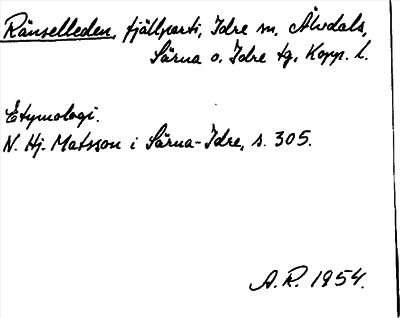 Ränselleden, fjällparti, Idre sn, Älvdals,
Särna o. Idre tg, Kopp. l.
Etymologi.
N. Hj. Matsson i Särna-Idre, s. 305.
A.R. 1954.